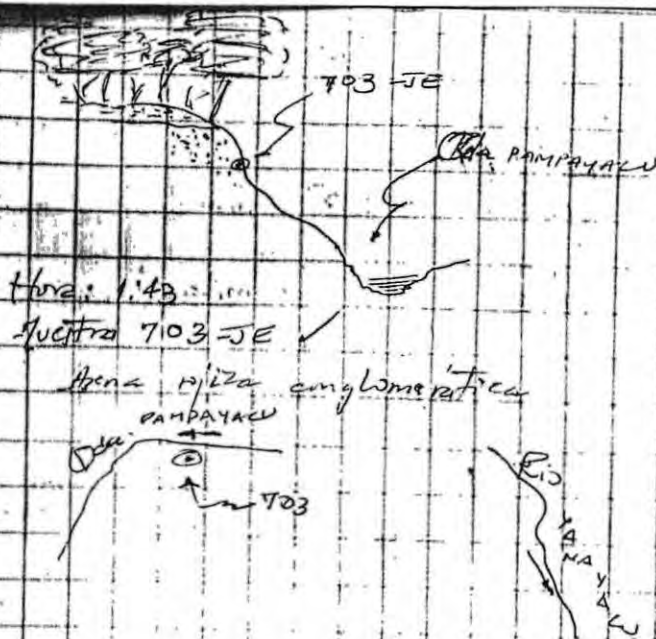 703-JE
Qda PAMPAYACU
Hora: 1:43
Muestra 703-JE
Arena rojiza conglomerática
Qda
PAMPAYACU
703
Rio
YANAYACU